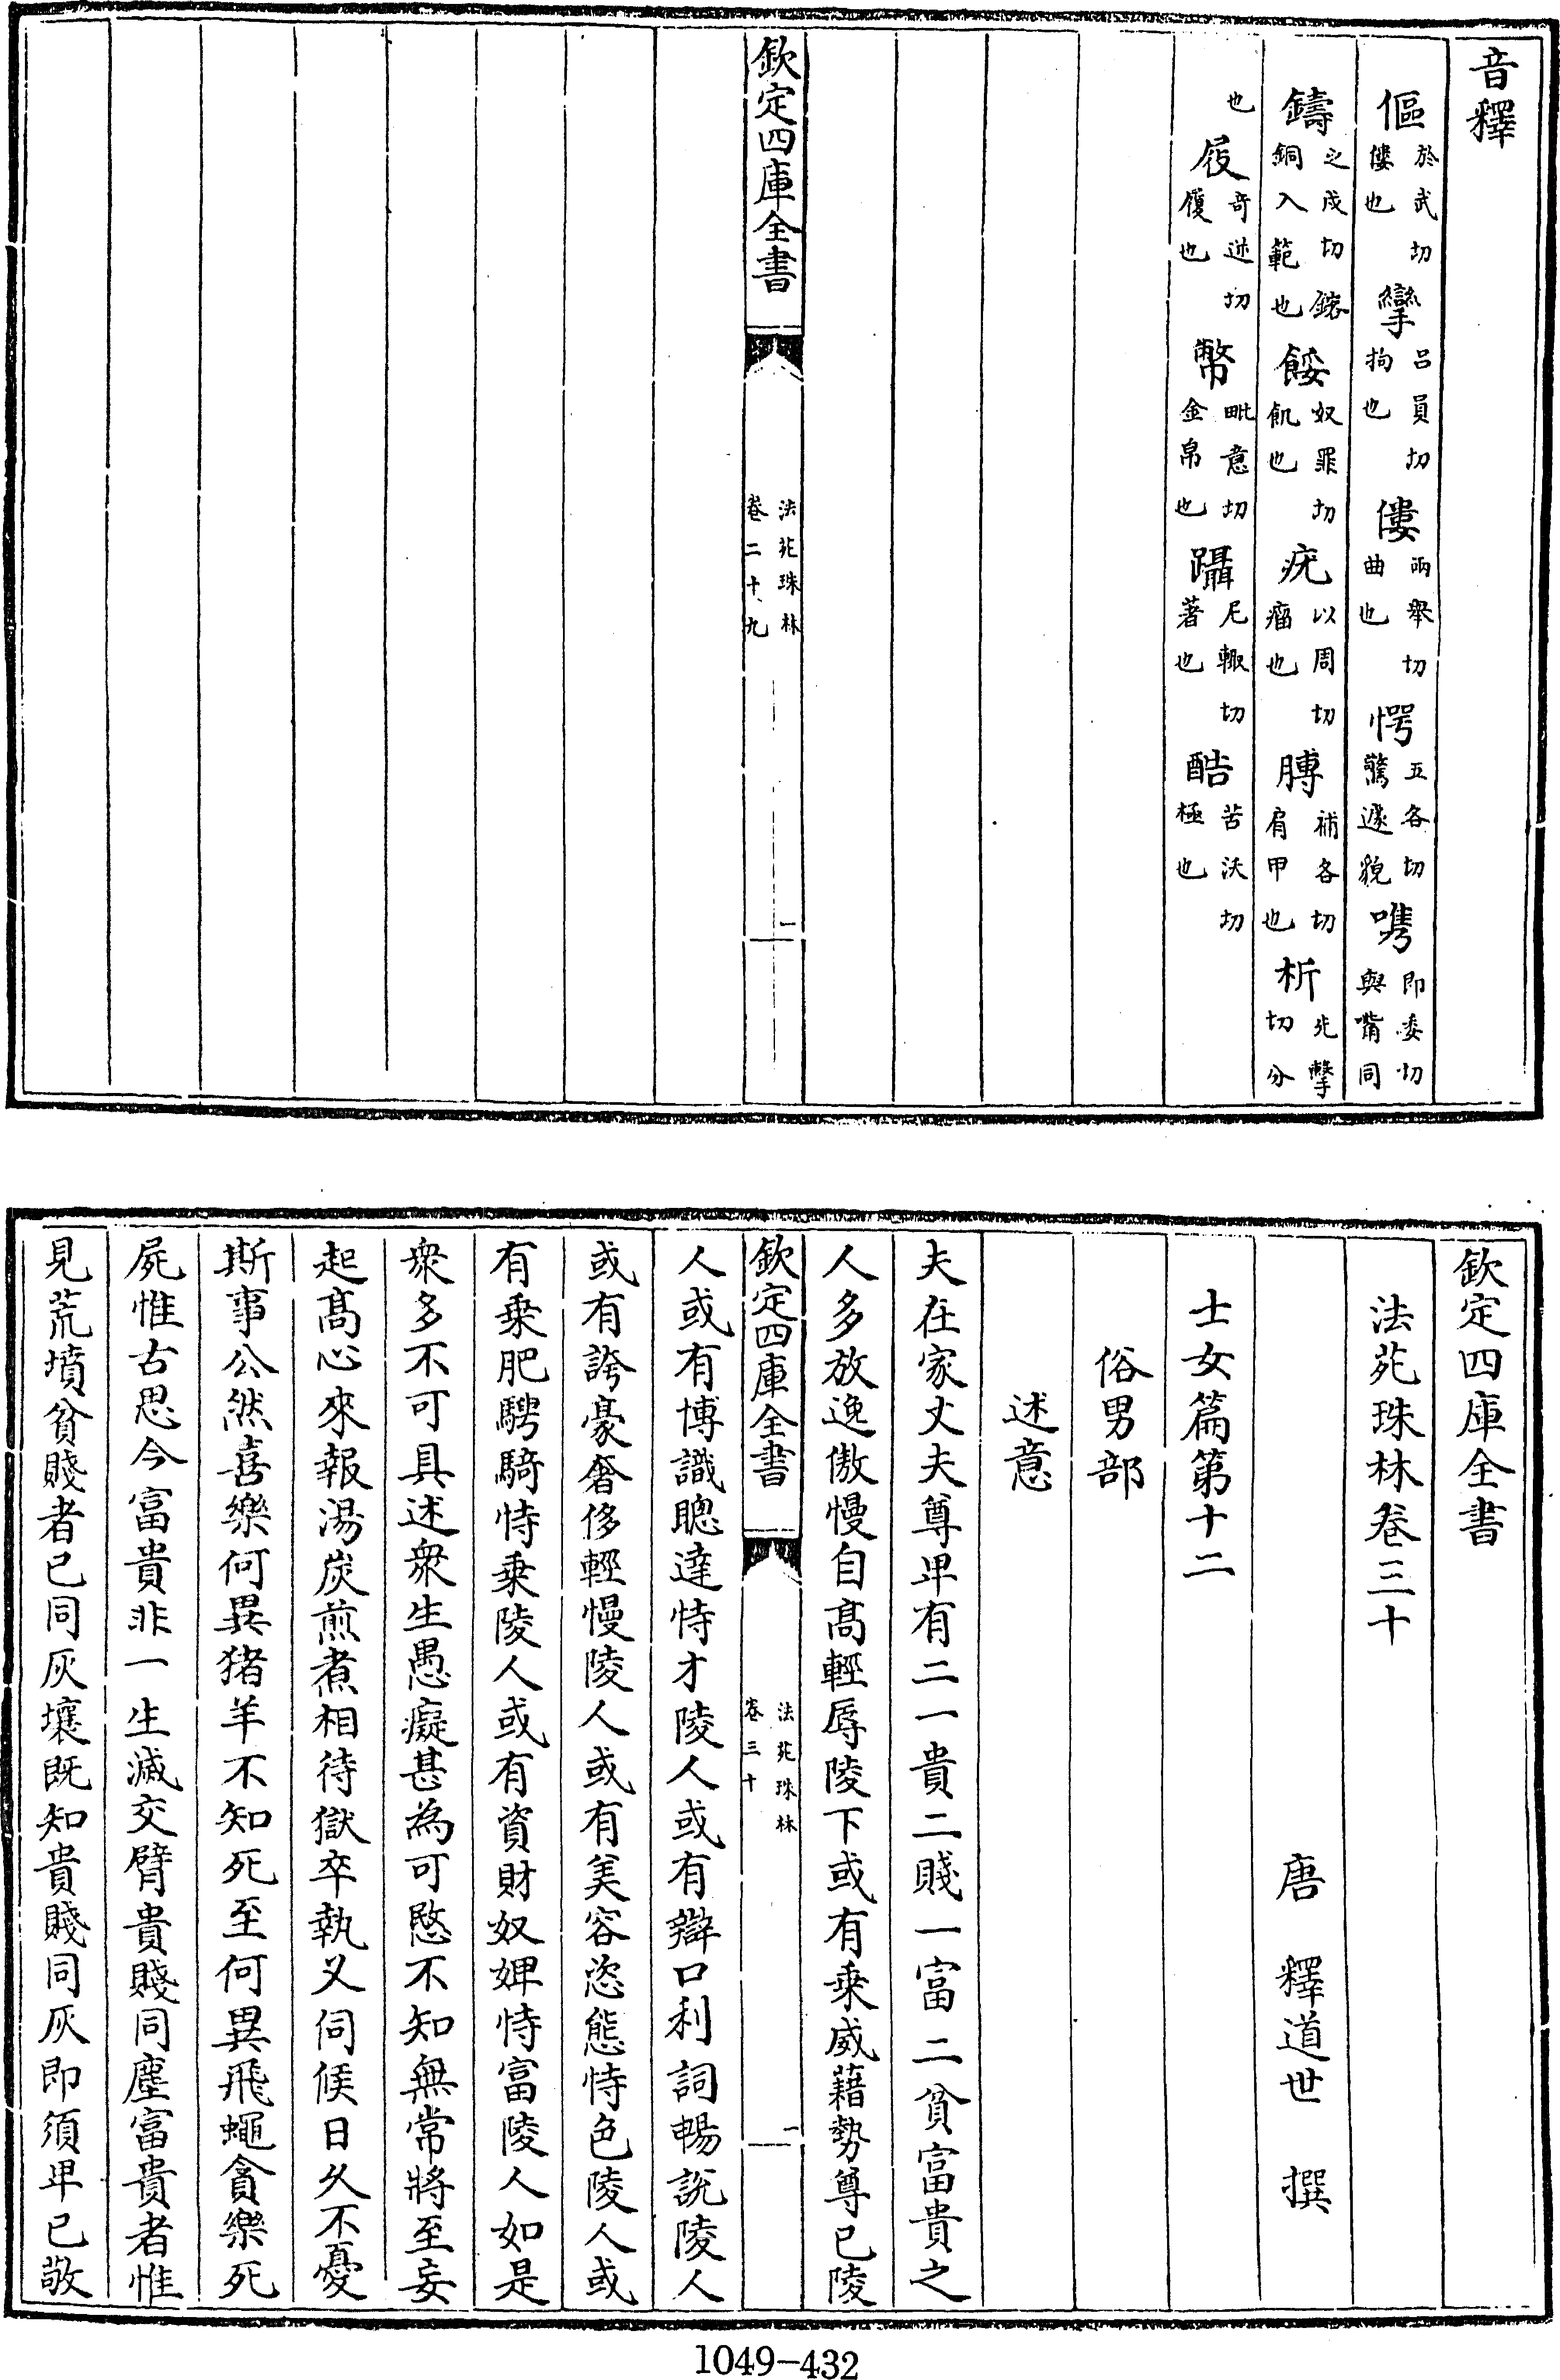 音釋
傴於武切僂也攣呂員切拘也僂兩舉切曲也愕五各切驚遽貌噿即委切與嘴同
鑄之戍切鎔銅入範也餧奴罪切飢也疣以周切瘤也膊補各切肩甲也析先擊切分
也屐奇逆切履也幣毗意切金帛也躡尼輒切著也酷苦沃切極也
欽定四庫全書
法苑珠林
卷二十九
一
欽定四庫全書
法苑珠林卷三十
唐 釋道世 撰
士女篇第十二
俗男部
述意
夫在家丈夫尊卑有二一貴二賤一富二貧富貴之
人多放逸傲慢自髙輕辱陵下或有乗威藉勢尊已陵
欽定四庫全書
法苑珠林
卷三十
一
人或有博識聰達恃才陵人或有辯口利詞暢說陵人
或有誇豪奢侈輕慢陵人或有美容恣態恃色陵人或
有乗肥騁騎恃乗陵人或有資財奴婢恃富陵人如是
衆多不可具述衆生愚癡甚為可愍不知無常將至妄
起髙心來報湯炭煎煮相待獄卒執叉伺候日久不憂
斯事公然喜樂何異猪羊不知死至何異飛蠅貪樂死
屍惟古思今富貴非一生滅交臂貴賤同塵富貴者惟
見荒墳貧賤者已同灰壤既知貴賤同灰即須卑已敬
1049-432